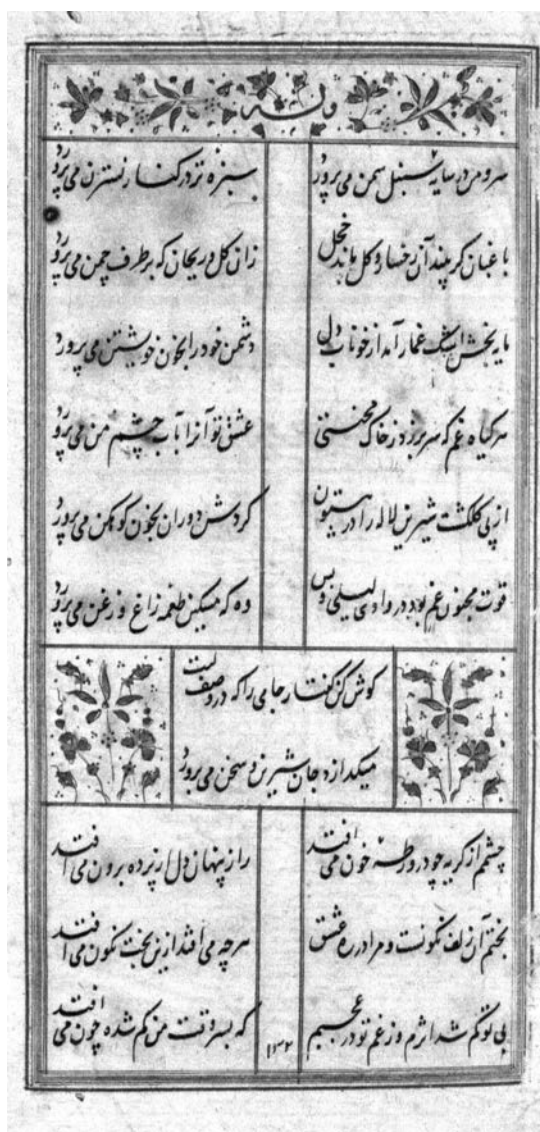 وله
سرو من در سایه سنبل سمن می پرورد
سبزه تر در کنار نسترن می پرورد
باغبان کر بیند آن رخسار و کل ماند خجل
زان کل و ریحان که بر طرف چمن می پرورد
مایه بخش اشک غماز آمد از خوناب دل
دشمن خود را بخون خویشتن می پرورد
هر کیاه غم که سر برزد ز خاک محنتی
عشق تو آنرا بآب چشم من می پرورد
از پی کلکشت شیرین لاله را در بیستون
کردش دوران بخون کوهکن می پرورد
قوت مجنون غم بود در وادی لیلی و بس
وه که مسکین طعمه زاغ و زغن می پرورد
کوش کن کفتار جامی را که در وصف لبت
میکدازد جان شیرین و سخن می پرورد
چشمم از کریه چو در ورطه خون می افتد
راز پنهان دل از پرده برون می افتد
بختم آن زلف نکونست و مرا در ره عشق
هرچه می افتد ازین بخت نکون می افتد
بی تو کم شد اثرم وز غم تو در عجبم
که بسر وقت من کم شده چون می افتد
۱۳۲